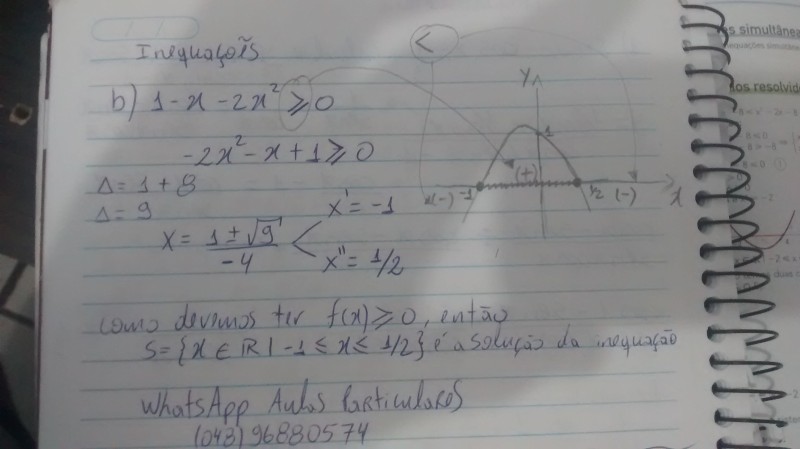 Inequações
<
b) 1 - x - 2x² ≥ 0
-2x² - x + 1 ≥ 0
Δ = 1 + 8
Δ = 9
x = 1 ± √9 / -4
x' = -1
x'' = 1/2
y
1
(+)
(-) -1
1/2 (-)
x
como devemos ter f(x) ≥ 0, então
S = {x ∈ ℝ | -1 ≤ x ≤ 1/2} é a solução da inequação
WhatsApp Aulas Particulares
(043) 96880574
simultânea
inequações simultâne
os resolvid